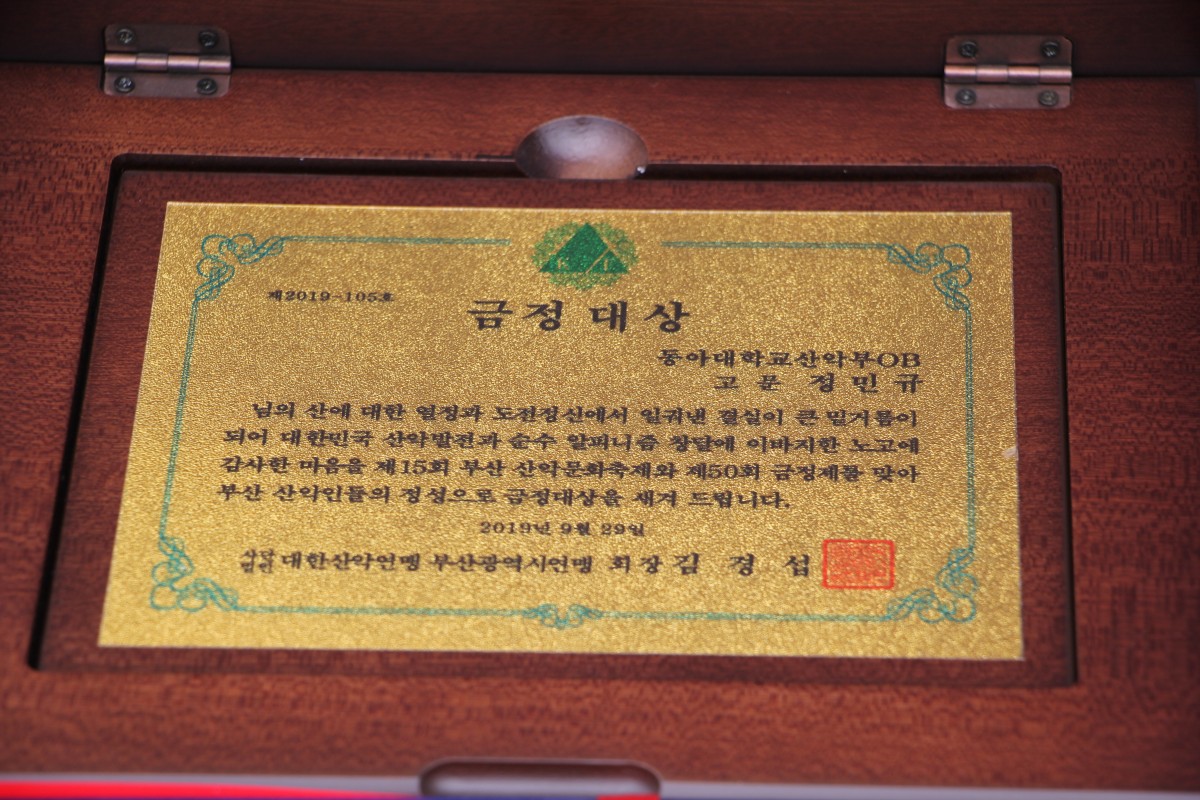 제2019-105호
금정대상
동아대학교산악부OB
고문 정민규
님의 산에 대한 열정과 도전정신에서 일궈낸 결실이 큰 밑거름이
되어 대한민국 산악발전과 순수 알피니즘 창달에 이바지한 노고에
감사한 마음을 제15회 부산 산악문화축제와 제50회 금정제를 맞아
부산 산악인들의 정성으로 금정대상을 새겨 드립니다.
2019년 9월 29일
사단법인 대한산악연맹 부산광역시연맹 회장 김 경 섭